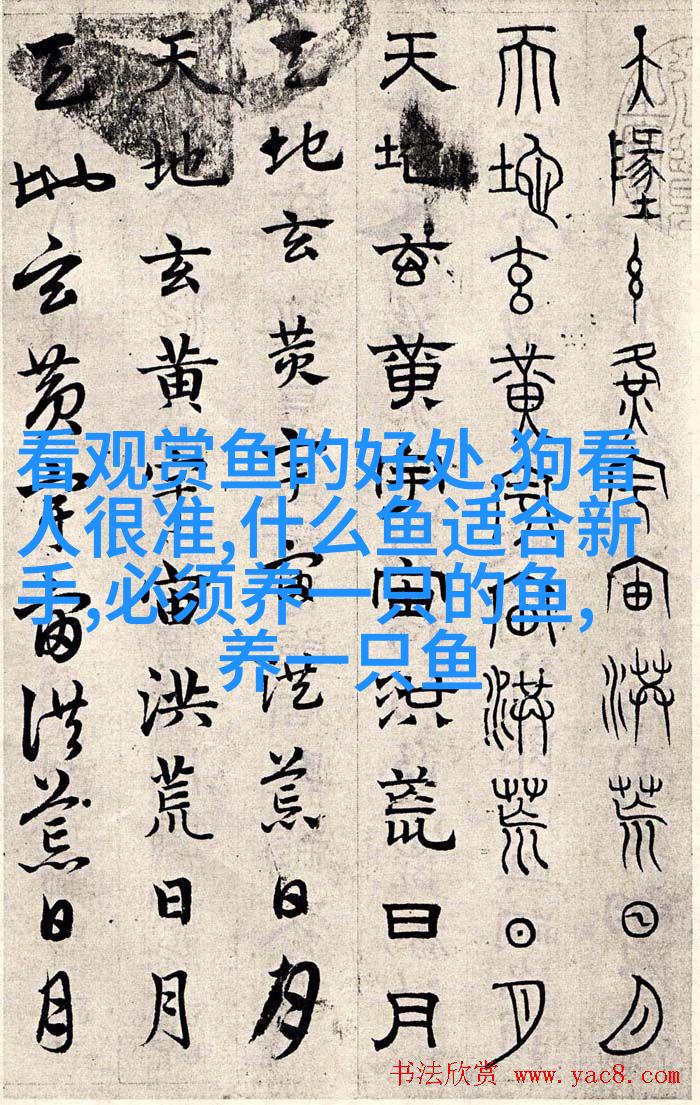 天地玄黃宇宙洪荒日月
天地玄黃宇宙洪荒日月
天地玄黃宇宙洪荒日月
天地玄黃宇宙洪荒日月
天地玄黃宇宙洪荒日月
天地玄黃宇宙洪荒日月
看观赏鱼的好处,狗看
人很准,什么鱼适合新
手,必须养一只的鱼,
养一只鱼
书法欣赏 www.yac8.com